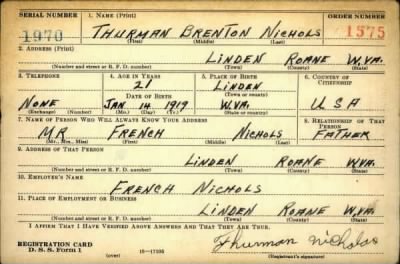 SERIAL NUMBER 1. NAME (Print) ORDER NUMBER
1970 THURMAN BRENTON NICHOLS 1575
(First) (Middle) (Last)
2. ADDRESS (Print)
LINDEN ROANE W.VA.
(Number and street or R. F. D. number) (Town) (County) (State)
3. TELEPHONE 4. AGE IN YEARS 5. PLACE OF BIRTH 6. COUNTRY OF CITIZENSHIP
21 LINDEN
DATE OF BIRTH (Town or county)
NONE JAN 14 1919 W.VA. USA
(Exchange) (Number) (Mo.) (Day) (Yr.) (State or country)
7. NAME OF PERSON WHO WILL ALWAYS KNOW YOUR ADDRESS 8. RELATIONSHIP OF THAT PERSON
MR FRENCH NICHOLS FATHER
(Mr., Mrs., Miss) (First) (Middle) (Last)
9. ADDRESS OF THAT PERSON
LINDEN ROANE W.VA.
(Number and street or R. F. D. number) (Town) (County) (State)
10. EMPLOYER'S NAME
FRENCH NICHOLS
11. PLACE OF EMPLOYMENT OR BUSINESS
LINDEN ROANE W.VA.
(Number and street or R. F. D. number) (Town) (County) (State)
I AFFIRM THAT I HAVE VERIFIED ABOVE ANSWERS AND THAT THEY ARE TRUE.
REGISTRATION CARD
D. S. S. Form 1 16—17105 Thurman Nichols
(Registrant's signature)